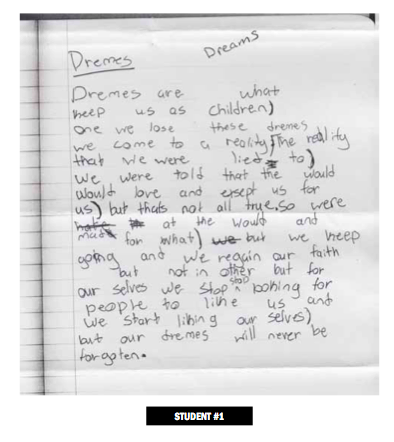 Dreams
Dremes
Dremes are what
keep us as children)
one we lose these dremes
we come to a reality) The reality
that we were lied to)
We were told that the would
would love and exsept us for
us) but thats not all true, so were
at the would and
for what) but we keep
going and we regain our faith
but not in other but for
our selves we stop stop looking for
people to like us and
we start liking our selves)
but our dremes will never be
forgoten.
STUDENT #1